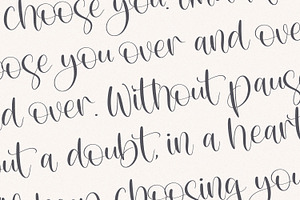 choose you
ose you over and ove
d over. Without paus
ut a doubt, in a heart
keep choosing you